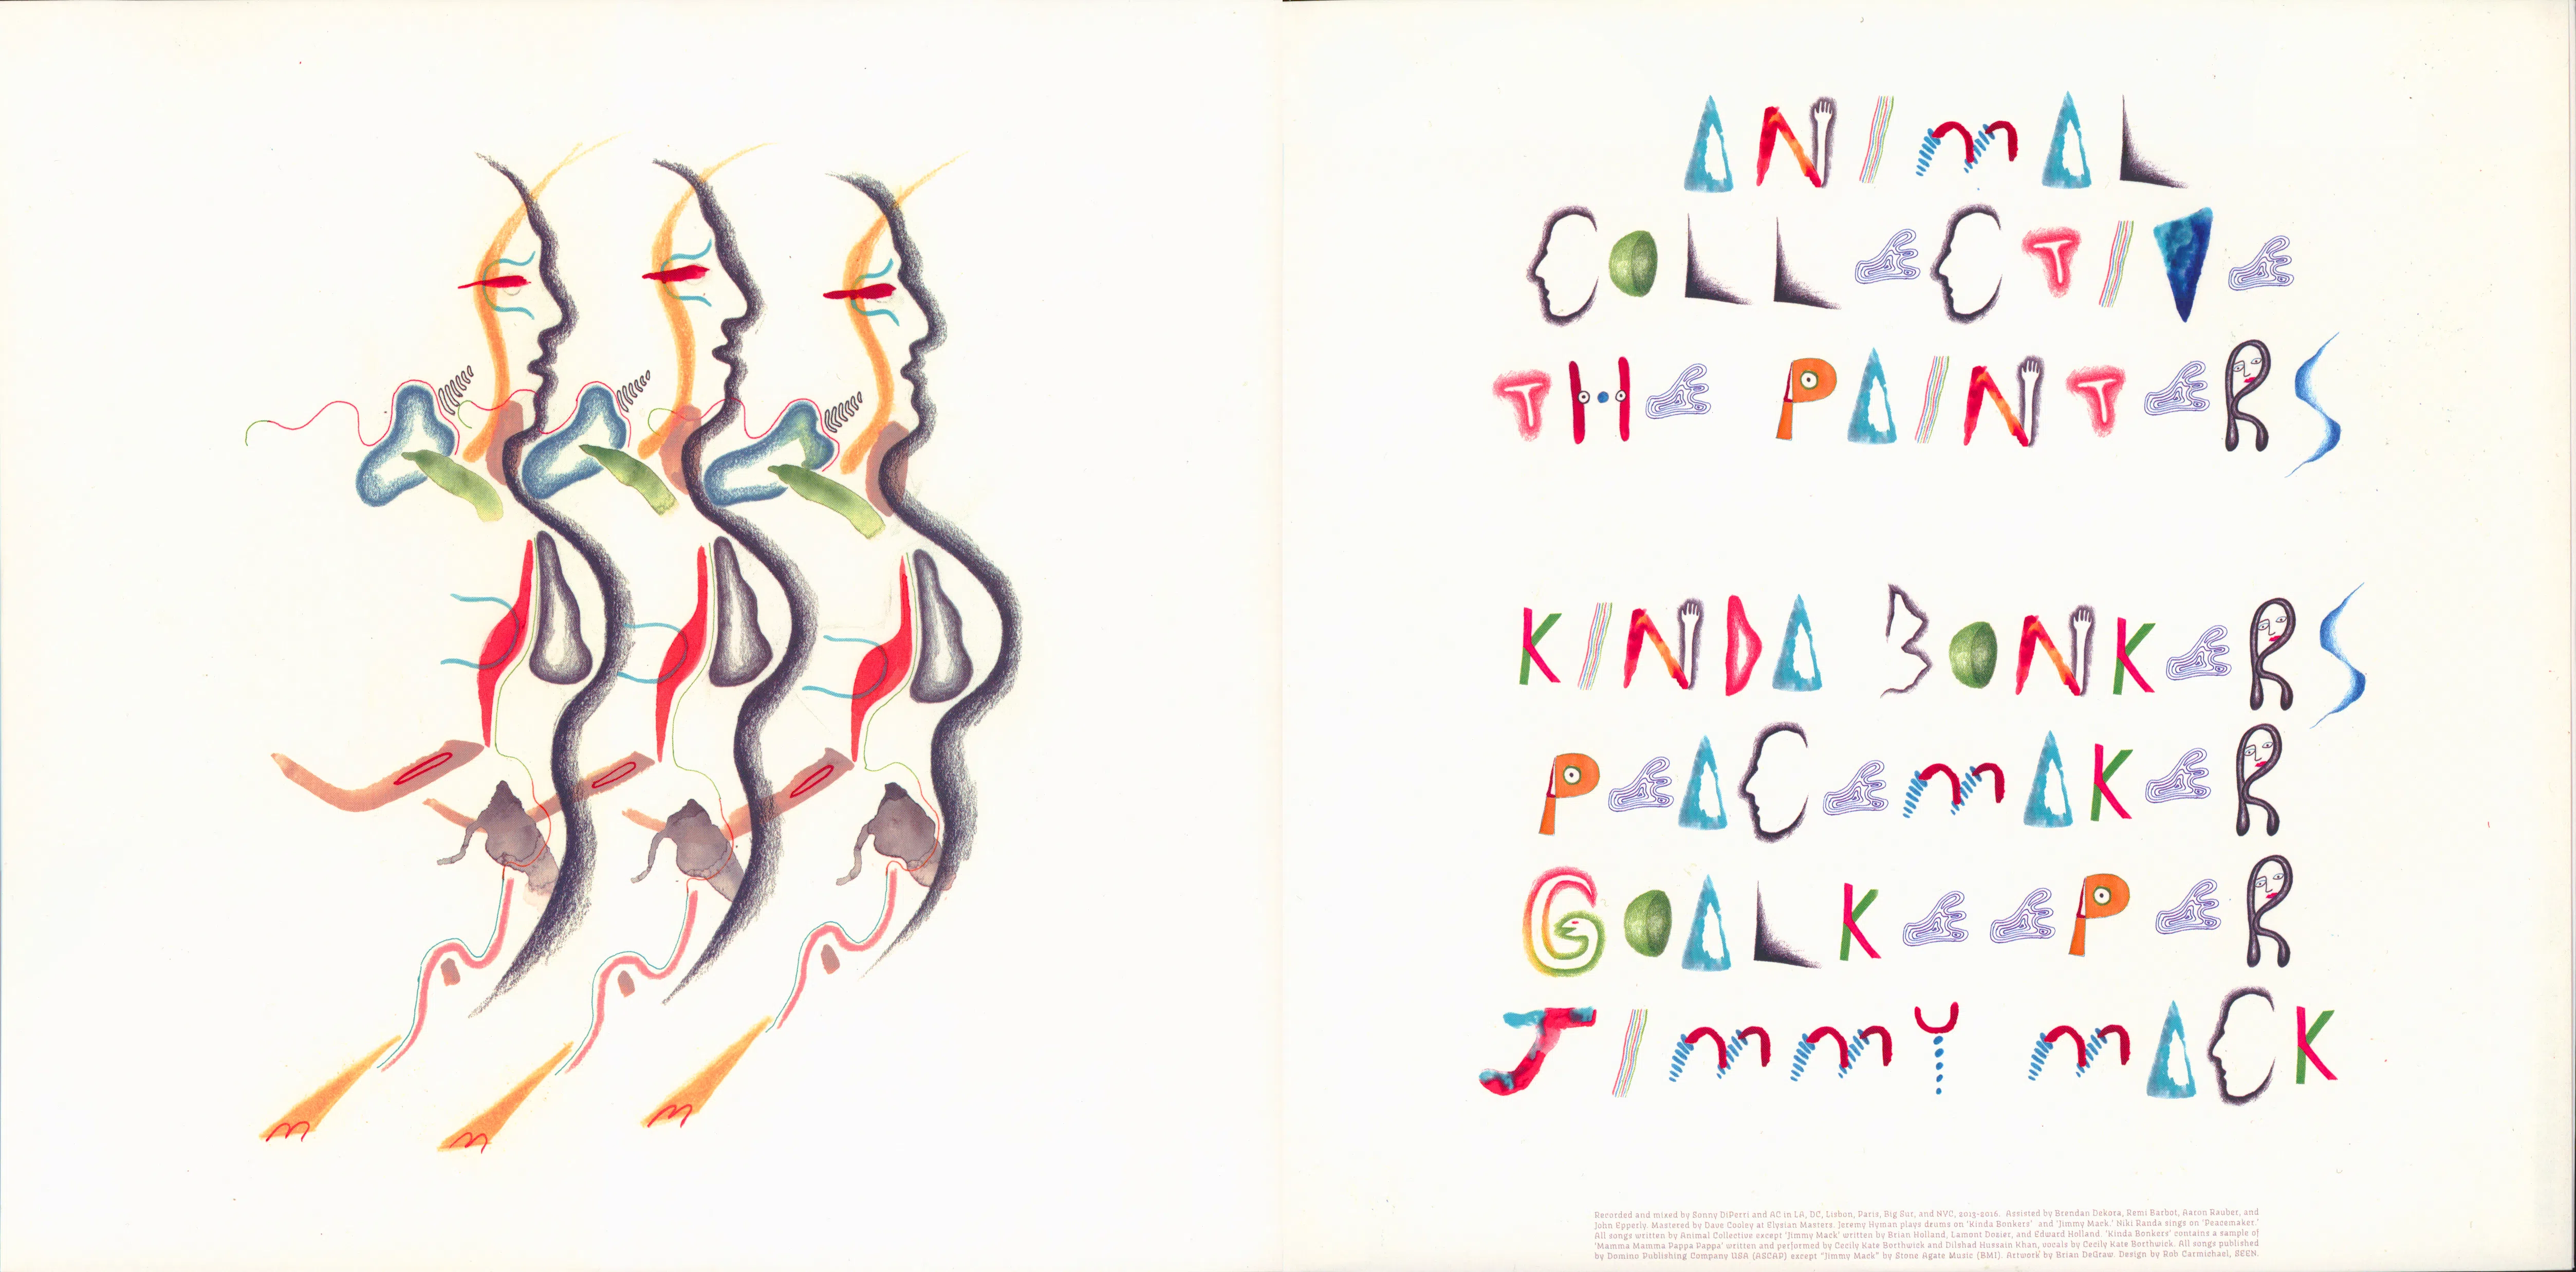 ANIMAL
COLLECTIVE
THE PAINTERS
KINDA BONKERS
PEACEMAKER
GOALKEEPER
JIMMY MACK
Recorded and mixed by Sonny DiPerri and AC in LA, DC, Lisbon, Paris, Big Sur, and NYC, 2013-2016. Assisted by Brendan Dekora, Remi Barbot, Aaron Rauber, and
John Epperly. Mastered by Dave Cooley at Elysian Masters. Jeremy Hyman plays drums on 'Kinda Bonkers' and 'Jimmy Mark.' Niki Randa sings on 'Peacemaker.'
All songs written by Animal Collective except 'Jimmy Mack' written by Brian Holland, Lamont Dozier, and Edward Holland. 'Kinda Bonkers' contains a sample of
'Mamma Mamma Pappa Pappa' written and performed by Cecily Kate Borthwick and Dilshad Hussain Khan, vocals by Cecily Kate Borthwick. All songs published
by Domino Publishing Company USA (ASCAP) except "Jimmy Mack" by Stone Agate Music (BMI). Artwork by Brian DeGraw. Design by Rob Carmichael, SEEN.